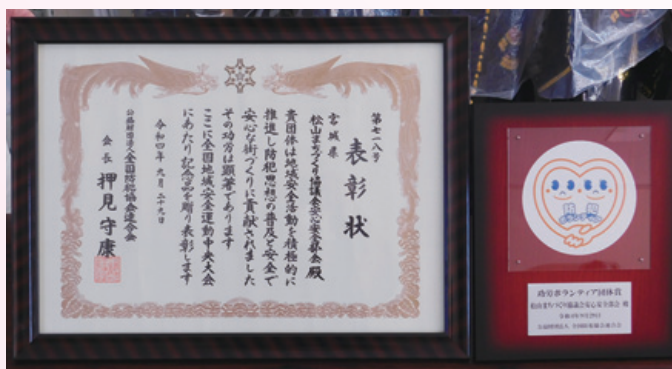 第七一八号
表彰状
宮城県
松山まちづくり協議会安心安全部会 殿
貴団体は地域安全活動を積極的に
推進し防犯思想の普及と安全で
安心な街づくりに貢献されました
その功労は顕著であります
ここに全国地域安全運動中央大会
にあたり記念品を贈り表彰します
令和四年 九月 二十九日
公益財団法人 全国防犯協会連合会
会長 押見守康
功労ボランティア団体賞
松山まちづくり協議会安心安全部会 殿
令和4年9月29日
公益財団法人 全国防犯協会連合会